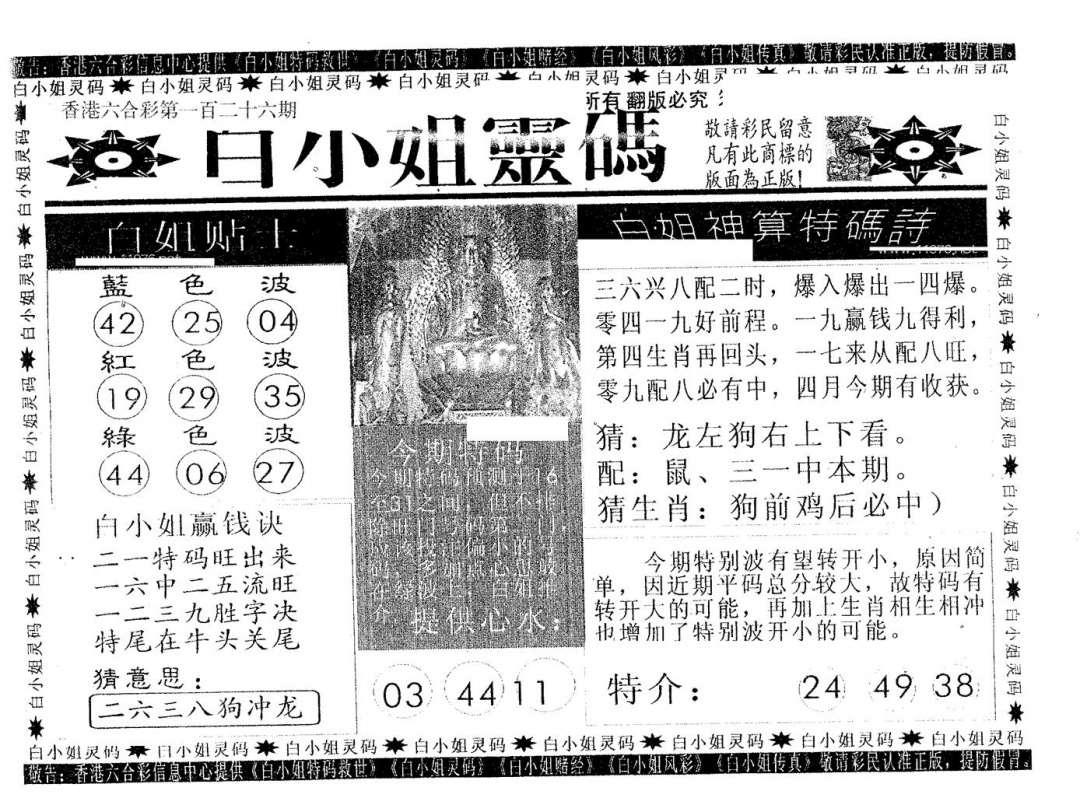 敬告：香港六合彩信息中心提供《白小姐特码救世》《白小姐灵码》《白小姐赌经》《白小姐风彩》《白小姐传真》敬请彩民认准正版，提防假冒。
白小姐灵码 白小姐灵码 白小姐灵码 白小姐灵码 白小姐灵码 白小姐灵
香港六合彩第一百二十六期
所有 翻版必究
白小姐靈碼
敬請彩民留意
凡有此商標的
版面為正版！
白姐贴士
藍 色 波
42 25 04
紅 色 波
19 29 35
綠 色 波
44 06 27
白小姐赢钱诀
二一特码旺出来
一六中二五流旺
一二三九胜字决
特尾在牛头关尾
猜意思：
二六三八狗冲龙
今期特码
提供心水：
03 44 11
白姐神算特碼詩
三六兴八配二时，爆入爆出一四爆。
零四一九好前程。一九赢钱九得利，
第四生肖再回头，一七来从配八旺，
零九配八必有中，四月今期有收获。
猜：龙左狗右上下看。
配：鼠、三一中本期。
猜生肖：狗前鸡后必中）
今期特别波有望转开小，原因简
单，因近期平码总分较大，故特码有
转开大的可能，再加上生肖相生相冲
也增加了特别波开小的可能。
特介： 24 49 38
白小姐灵码 白小姐灵码 白小姐灵码 白小姐灵码 白小姐灵码
白小姐灵码 白小姐灵码 白小姐灵码 白小姐灵码 白小姐灵码
白小姐灵码 白小姐灵码 白小姐灵码 白小姐灵码 白小姐灵码 白小姐灵码 白小姐灵码 白小姐灵码
敬告：香港六合彩信息中心提供《白小姐特码救世》《白小姐灵码》《白小姐赌经》《白小姐风彩》《白小姐传真》敬请彩民认准正版，提防假冒